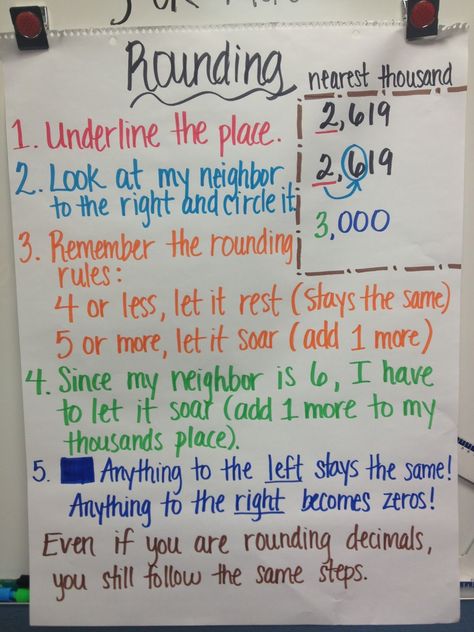 Rounding
nearest thousand
2,619
2,619
3,000
1. Underline the place.
2. Look at my neighbor
to the right and circle it
3. Remember the rounding
rules:
4 or less, let it rest (stays the same)
5 or more, let it soar (add 1 more)
4. Since my neighbor is 6, I have
to let it soar (add 1 more to my
thousands place).
5. Anything to the left stays the same!
Anything to the right becomes zeros!
Even if you are rounding decimals,
you still follow the same steps.